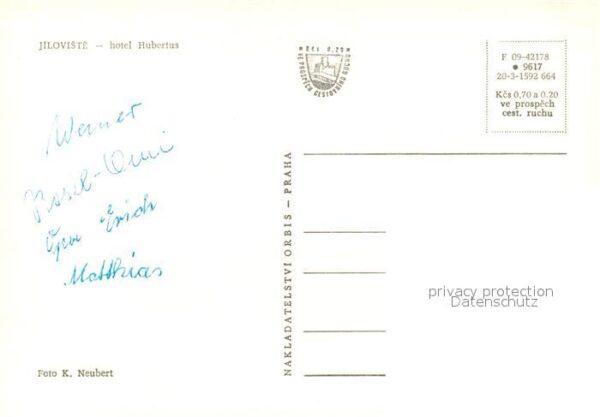 JÍLOVIŠTĚ — hotel Hubertus
Werner
Rosel-Omi
Opa Erich
Matthias
Foto K. Neubert
NAKLADATELSTVÍ ORBIS — PRAHA
VE PROSPĚCH CESTOVNÍHO RUCHU
F 09-42178
● 9617
20-3-1592 664
Kčs 0,70 a 0.20
ve prospěch
cest. ruchu
privacy protection
Datenschutz